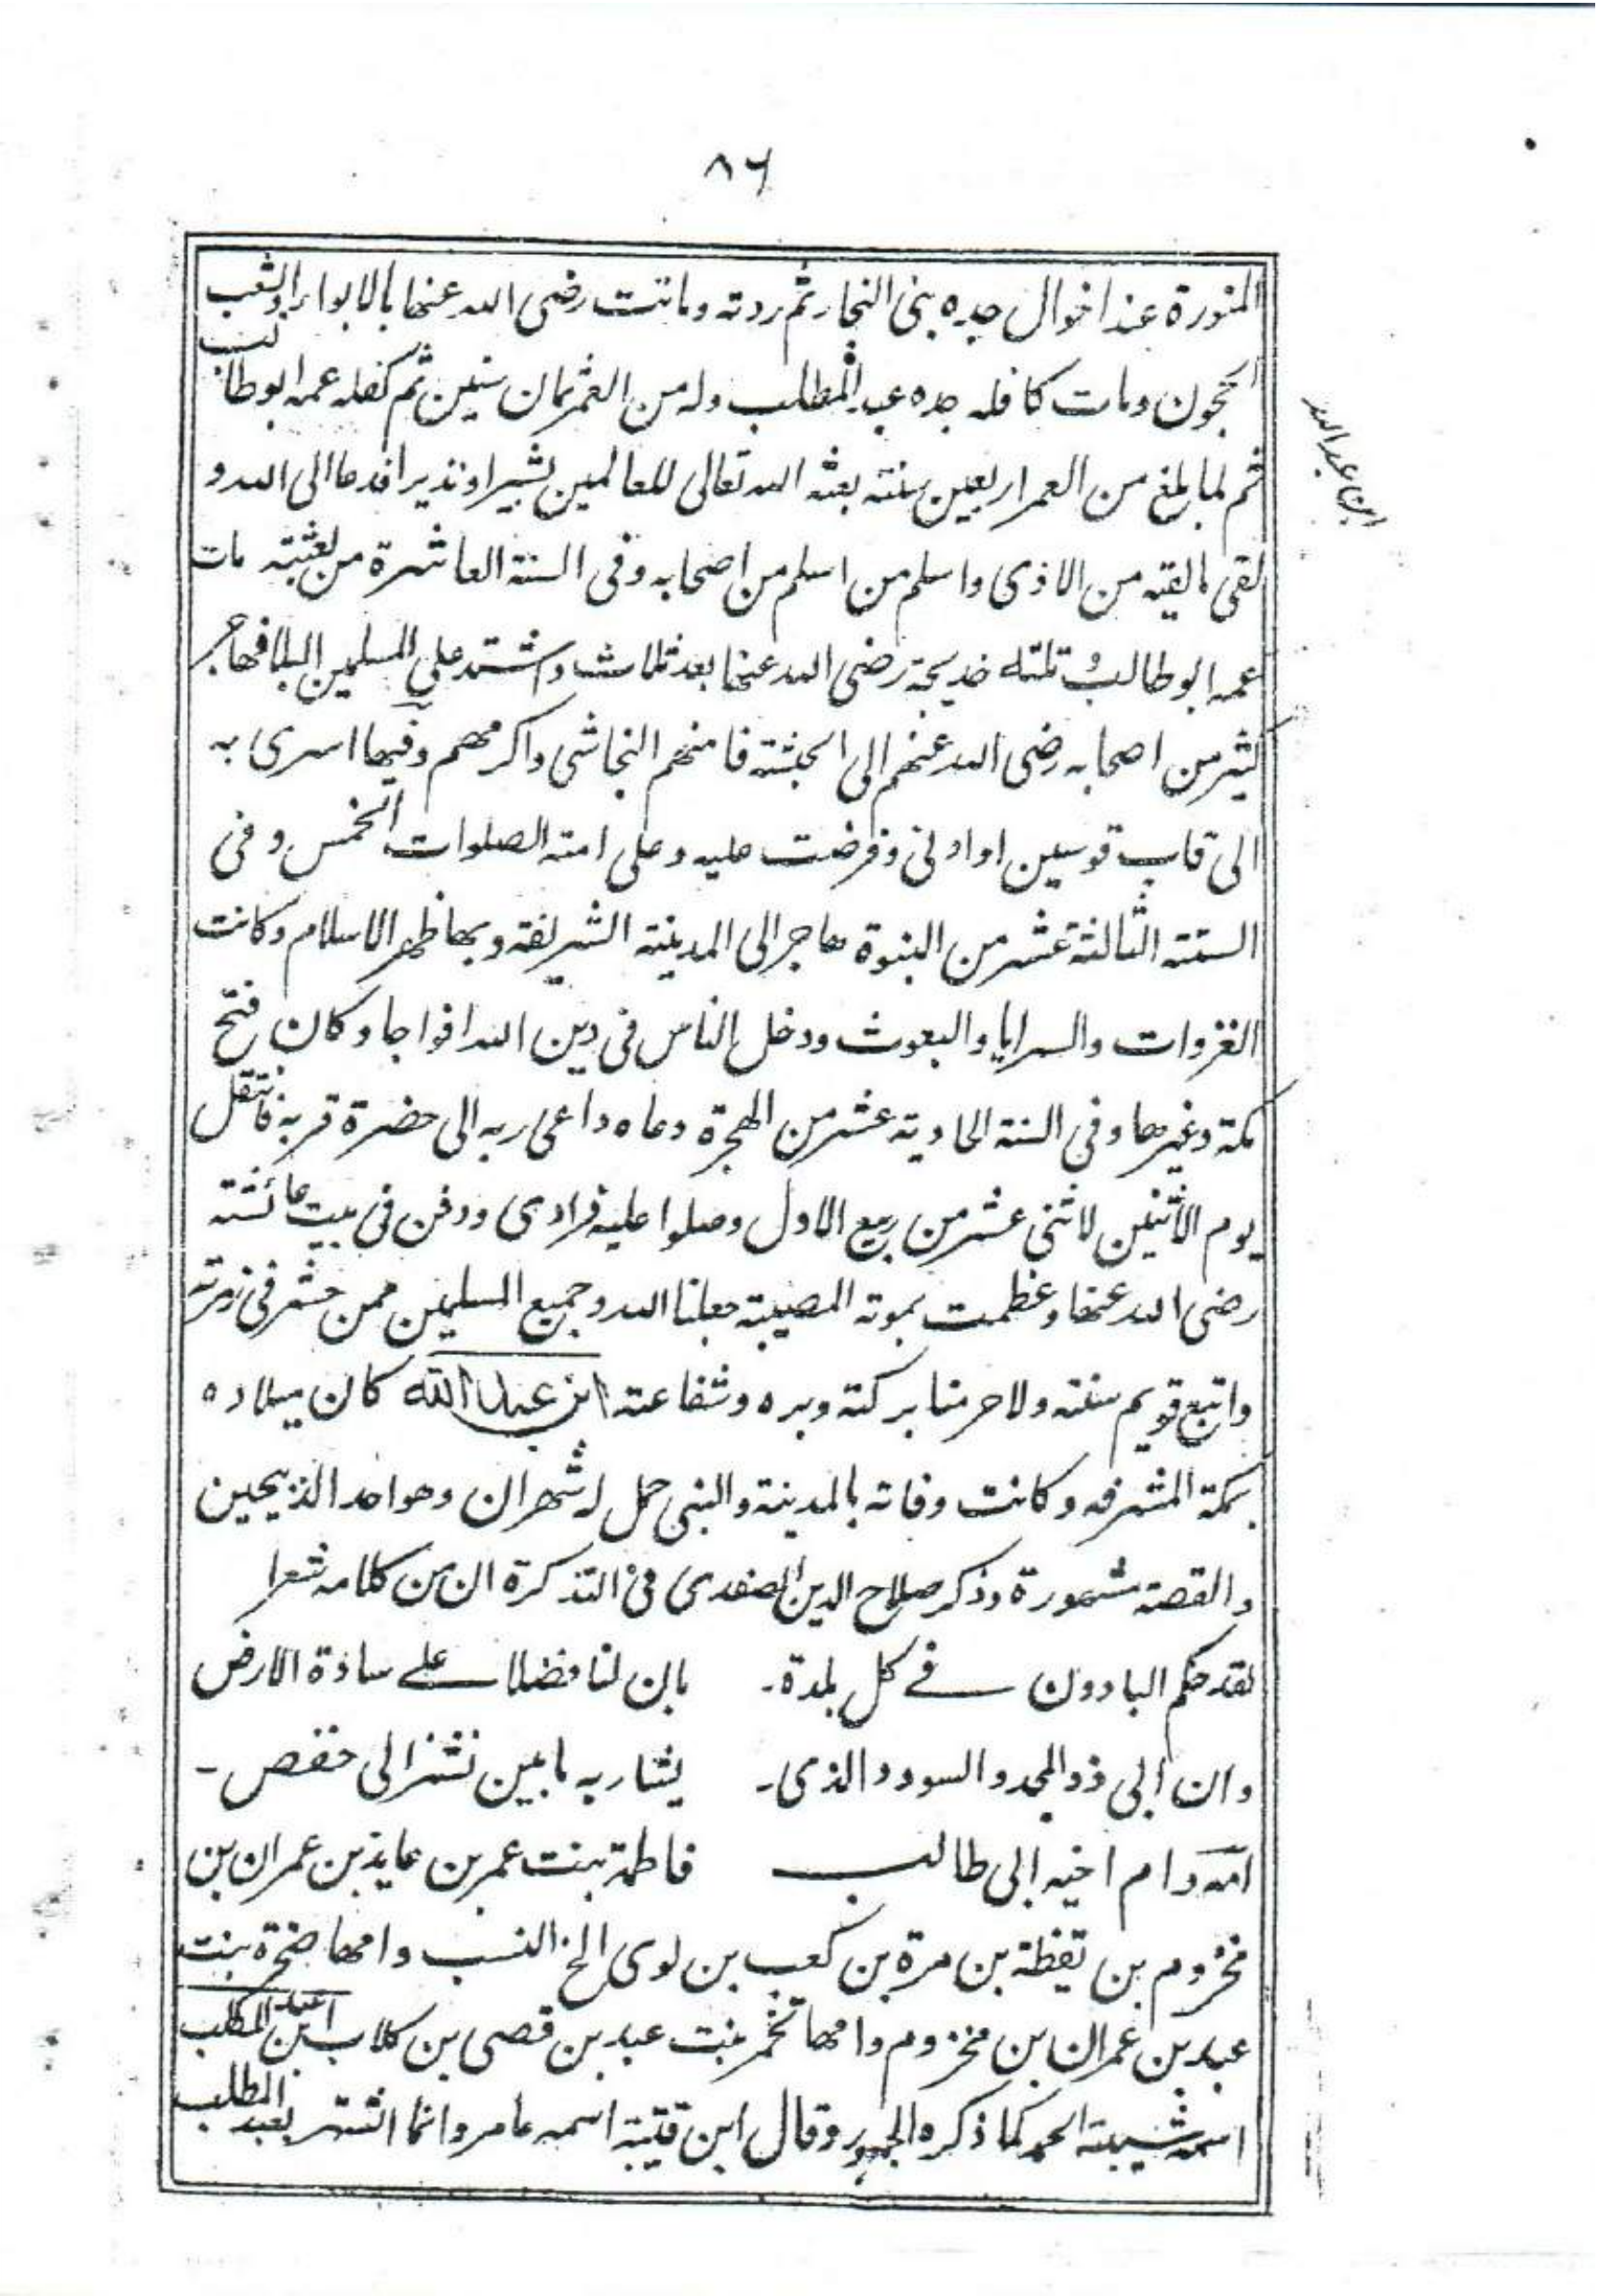 ٨٦
المنورة عند اخوال جده بنى النجار ثم ردته وماتت رضى الله عنها بالابواء او بشعب
الحجون ومات كافله جده عبد المطلب وله من العمر ثمان سنين ثم كفله عمه ابو طالب
ثم لما بلغ من العمر اربعين سنته بعثه الله تعالى للعالمين بشيرا ونذيرا فدعا الى الله و
لقى ما لقيه من الاذى واسلم من اسلم من اصحابه وفى السنة العاشرة من بعثته مات
عمه ابو طالب و تلته خديجة رضى الله عنها بعد ثلاث واشتد على المسلمين البلا فهاجر
كثير من اصحابه رضى الله عنهم الى الحبشة فامنهم النجاشى واكرمهم وفيها اسرى به
الى قاب قوسين او ادنى وفرضت عليه وعلى امته الصلوات الخمس وفى
السنة الثالثة عشر من النبوة هاجر الى المدينة الشريفة وبها ظهر الاسلام وكانت
الغزوات والسرايا والبعوث ودخل الناس فى دين الله افواجا وكان فتح
مكة وغيرها وفى السنة الحادية عشر من الهجرة دعاه داعى ربه الى حضرة قربه فانتقل
يوم الاثنين لاثنى عشر من ربيع الاول وصلوا عليه فرادى ودفن فى بيت عائشة
رضى الله عنها وعظمت بموته المصيبة جعلنا الله وجميع المسلمين ممن حشر فى زمرته
واتبع قويم سنته ولا حرمنا بركته وبره وشفاعته ابن عبد الله كان ميلاده
بمكة المشرفه وكانت وفاته بالمدينة والنبى حمل له شهران وهو احد الذبيحين
والقصة مشهورة وذكر صلاح الدين الصفدى فى التذكرة ان من كلامه شعرا
لقد حكم البادون فے كل بلدة۔ بان لنا فضلا علے سادة الارض
وان ابى ذو المجد والسودد الذى۔ يشار به ما بين نشز الى خفص۔
امه وام اخيه ابى طالب فاطمة بنت عمر بن عايذ بن عمران بن
مخزوم بن يقظة بن مرة بن كعب بن لوى الخ النسب وامها صخرة بنت
عبد بن عمران بن مخزوم وامها تخمر بنت عبد بن قصى بن كلاب ابن عبد المطلب
اسمه شيبة الحمد كما ذكره الجمهور وقال ابن قتيبة اسمه عامر وانما اشتهر بعبد المطلب
ابن عبد الله